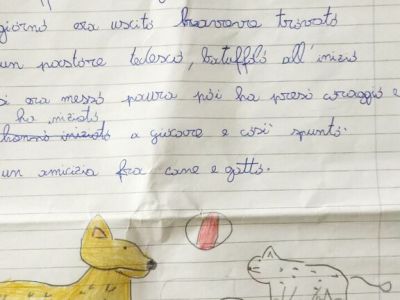 giorno era uscito trovato
un pastore tedesco, batuffolo all'inizio
si era messo paura poi ha preso coraggio e
ha iniziato
hanno iniziato a giocare e così spuntò
un amicizia fra cane e gatto.